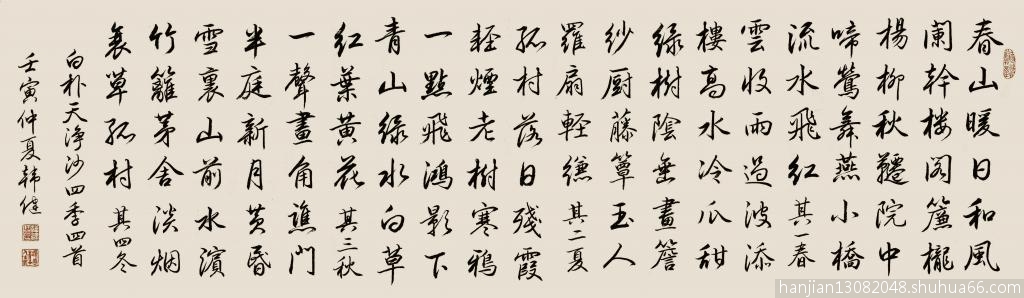 春山暖日和風
闌幹楼阁簾櫳
楊柳秋韆院中
啼鶯舞燕小橋
流水飛紅 其一春
雲收雨過波添
樓高水冷瓜甜
绿樹陰垂畫簷
纱厨藤簟玉人
羅扇軽縑 其二夏
孤村落日殘霞
轻煙老樹寒鴉
一點飛鴻影下
青山绿水白草
红葉黄花 其三秋
一聲畫角譙門
半庭新月黄昏
雪裏山前水濱
竹籬茅舍淡烟
衰草孤村 其四冬
白朴天净沙四季四首
壬寅仲夏韩健
hanjian13082048.shuhua66.com